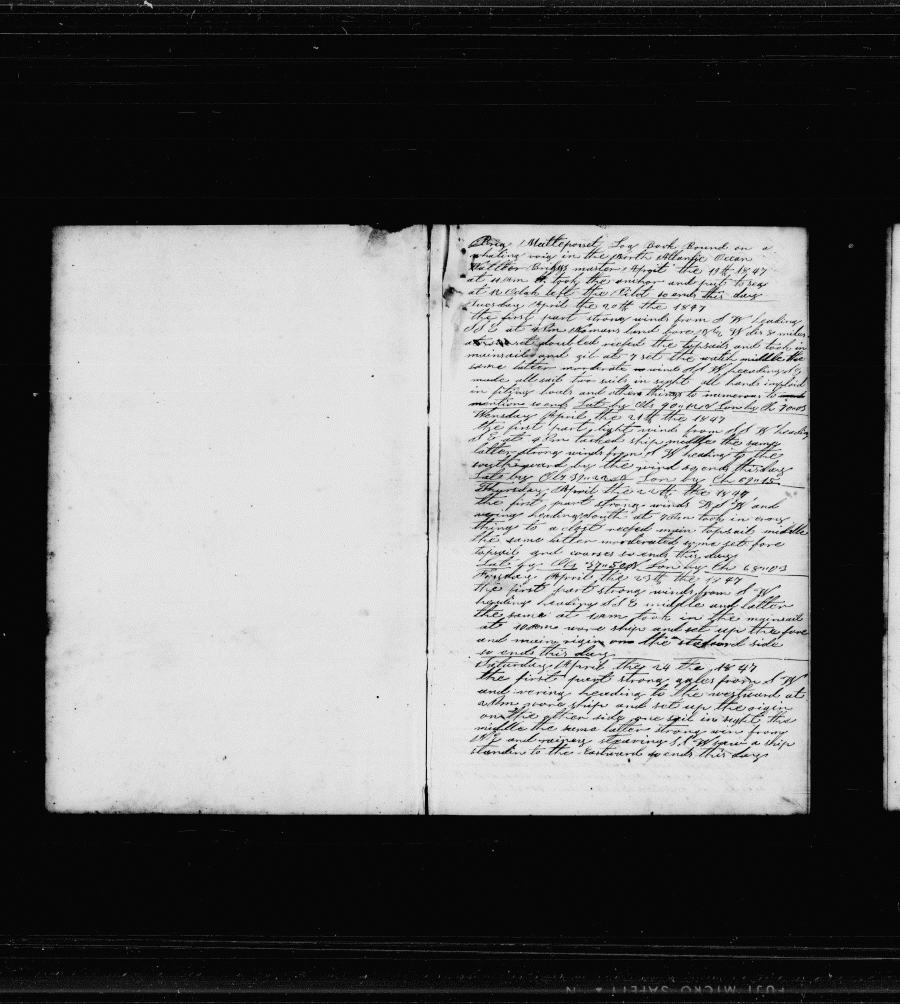 Brig Mattepoiset Log Book Bound on a
whaling voig in the North Atlantic Ocean
master April the 19th 1847
at 11 am took the anchor and put to sea
at 12 Oclok left the Pilot so ends this day
Tuesday April the 20th the 1847
the first part strong winds from S W heading
S S E at 4 Pm Nomans land bore W dis 8 miles
doubled reefed the topsails and took in
mainsails and gib at 7 set the watch middle the
same latter moderate winds S W heading
made all sail two sails in sight all hands imploid
in fitting boats and other things to numerous to
mention so ends Lat by Obs 40 Lon by Ch 70
Wensday April the 21th the 1847
the first part light winds from S S W heading
S E at 4 Pm tacked ship middle the same
latter strong winds from S W heading to the
southward by the wind so ends this day
Lat by Obs 39 Lon by Ch 69 15
Thursday April the 22th the 1847
the first part strong winds W S W and
vering heading South at 7 Pm took in every
thing to a clost reefed main topsail middle
the same latter moderated some set fore
topsail and courses so ends this day
Lat by Obs 37 50 N Lon by Ch 68 03
Friday April the 23th the 1847
the first part strong winds from S W
heading heading S S E middle and latter
the same at 1 am took in the mainsail
at 10 am wore ship and set up the fore
and main rigin on the side
so ends this day
Saturday April the 24 the 1847
the first part strong gales from S W
and vering heading to the westward at
2 Pm wore ship and set up the rigin
on the other side one sail in sight the
middle the same latter strong from
N E and rainery stearing S S W saw a ship
standin to the Eastward so ends this day
FUJI MICRO SAFETY